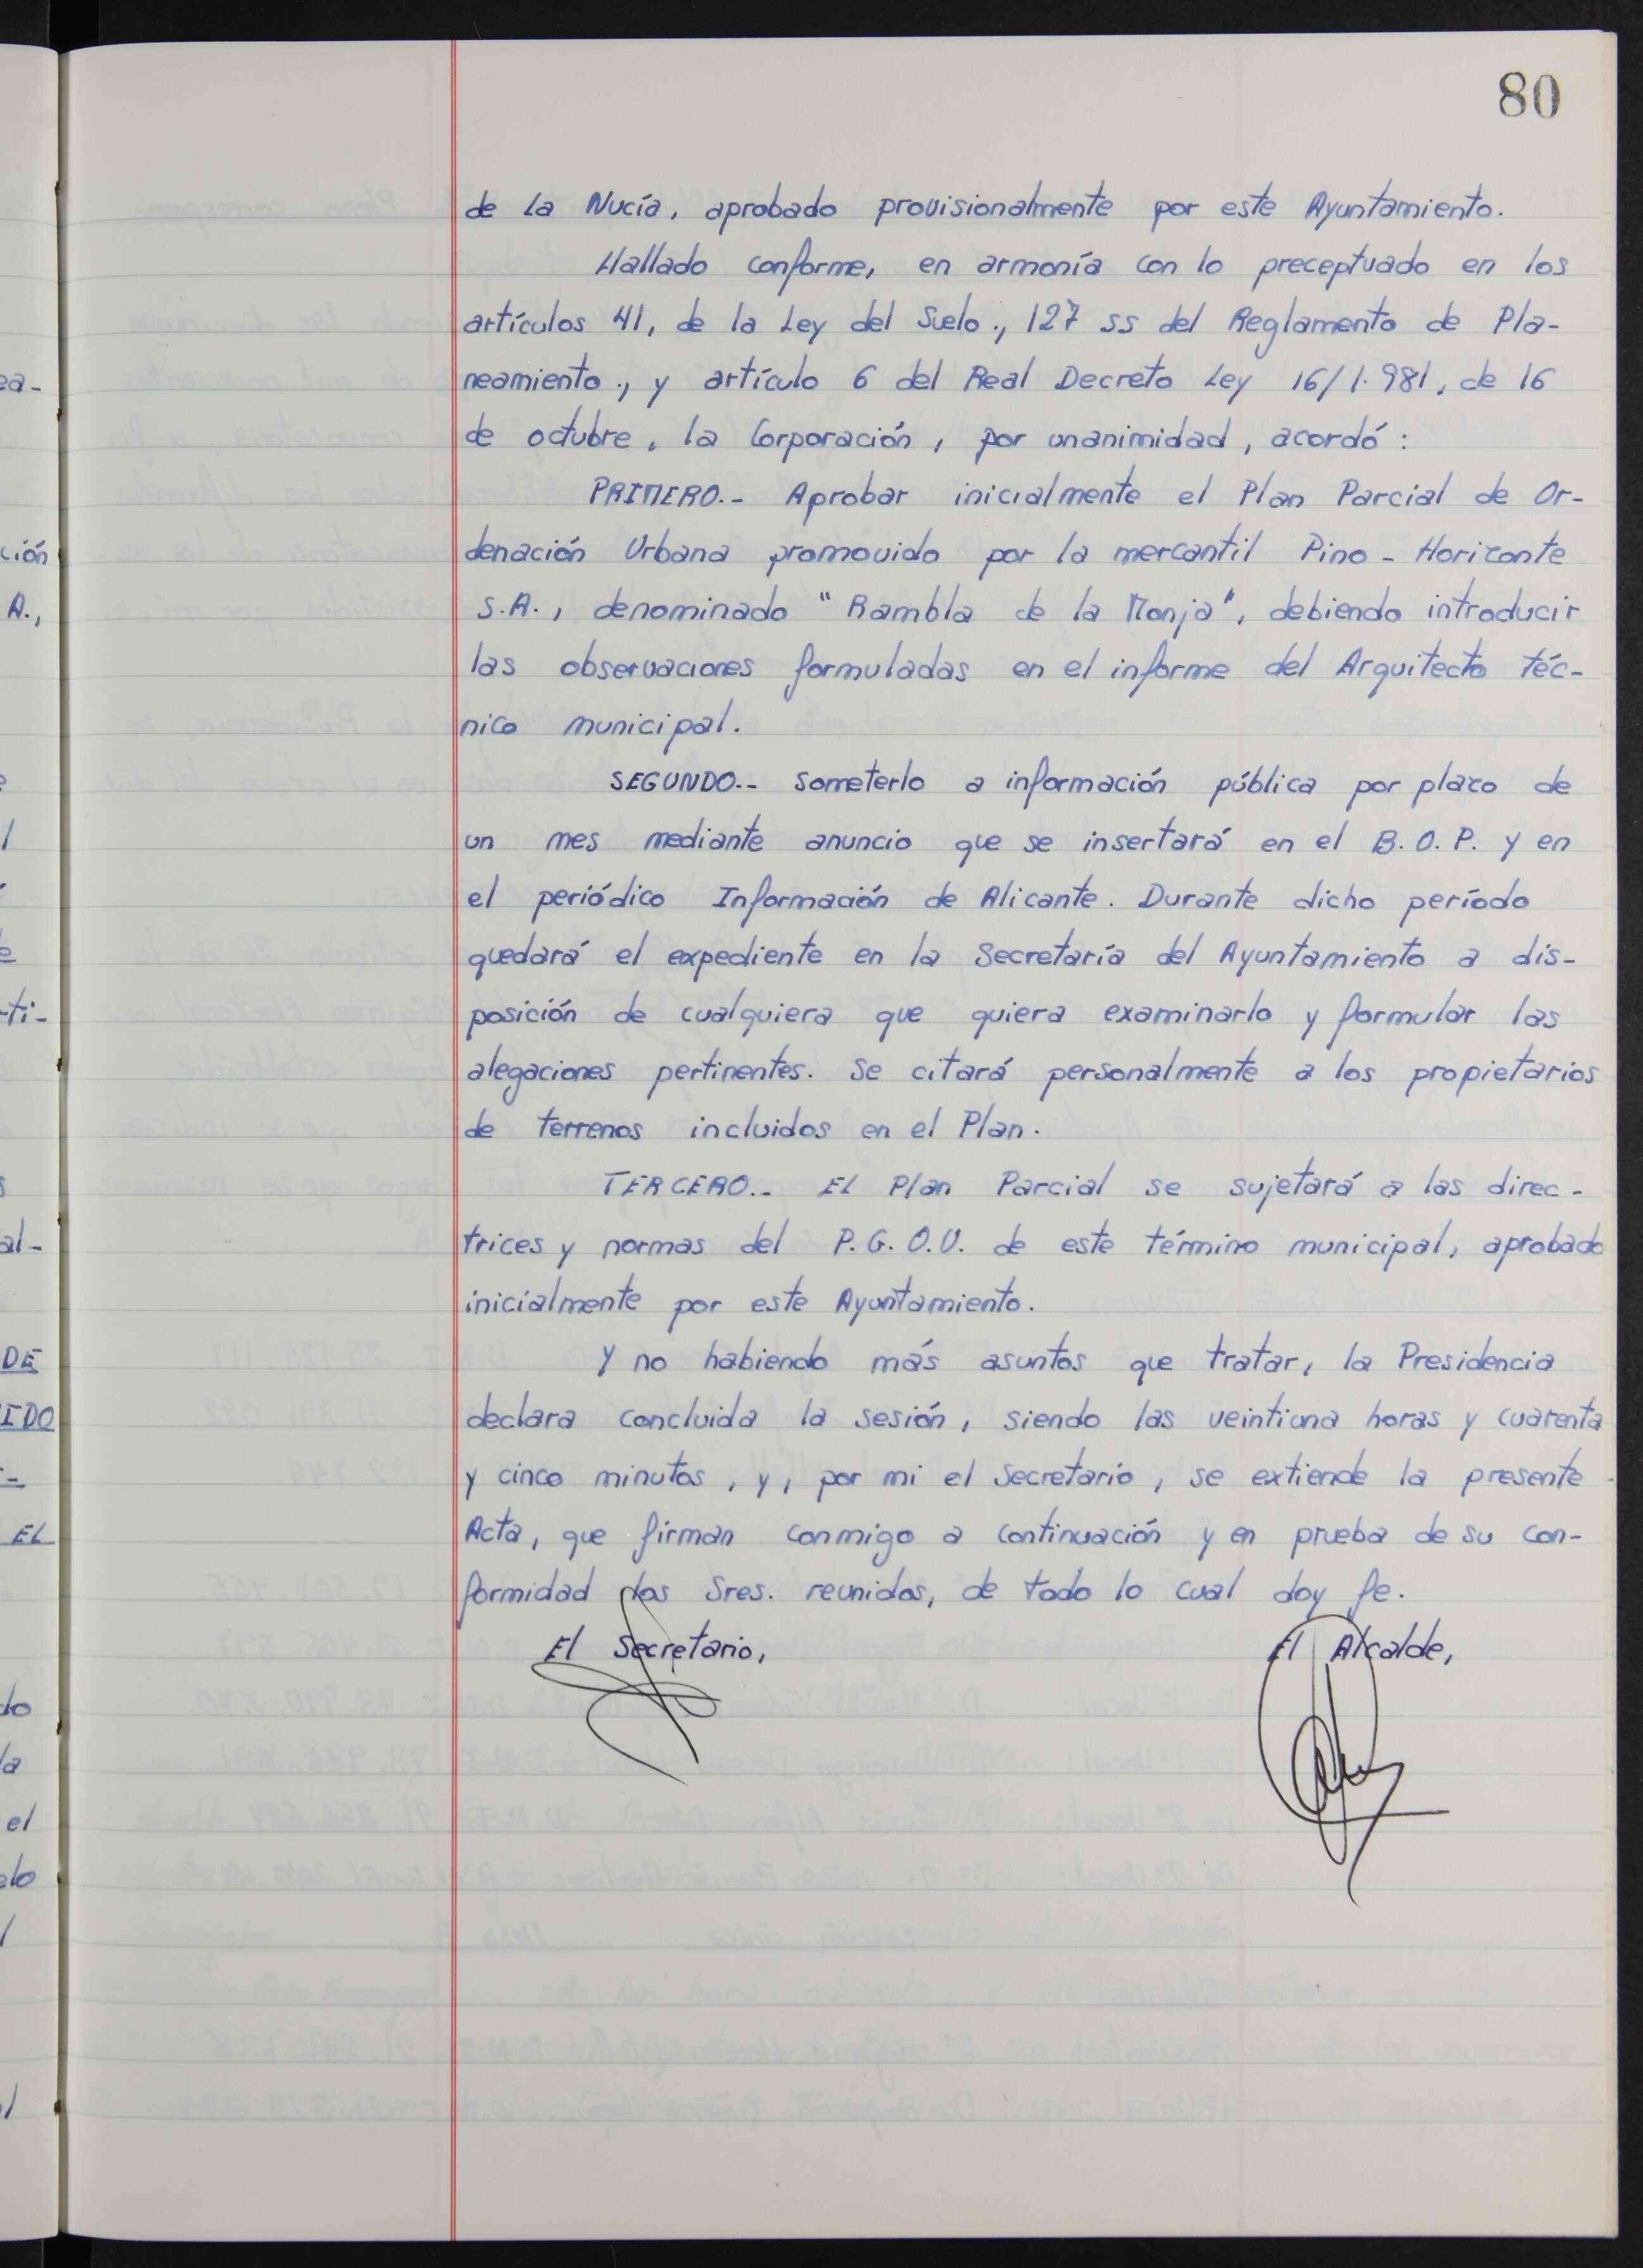 80
de la Nucía, aprobado provisionalmente por este Ayuntamiento.
Hallado conforme, en armonía con lo preceptuado en los
artículos 41, de la Ley del Suelo., 127 ss del Reglamento de Pla-
neamiento., y artículo 6 del Real Decreto Ley 16/1.981, de 16
de octubre, la Corporación, por unanimidad, acordó:
PRIMERO.- Aprobar inicialmente el Plan Parcial de Or-
denación Urbana promovido por la mercantil Pino - Horizonte
S.A., denominado "Rambla de la Monja", debiendo introducir
las observaciones formuladas en el informe del Arquitecto téc-
nico municipal.
SEGUNDO.- Someterlo a información pública por plazo de
un mes mediante anuncio que se insertará en el B.O.P. y en
el periódico Información de Alicante. Durante dicho período
quedará el expediente en la Secretaría del Ayuntamiento a dis-
posición de cualquiera que quiera examinarlo y formular las
alegaciones pertinentes. Se citará personalmente a los propietarios
de terrenos incluidos en el Plan.
TERCERO.- El Plan Parcial se sujetará a las direc-
trices y normas del P.G.O.U. de este término municipal, aprobado
inicialmente por este Ayuntamiento.
Y no habiendo más asuntos que tratar, la Presidencia
declara concluida la sesión, siendo las veintiuna horas y cuarenta
y cinco minutos, y, por mi el Secretario, se extiende la presente
Acta, que firman conmigo a continuación y en prueba de su con-
formidad los Sres. reunidos, de todo lo cual doy fe.
El Secretario,
El Alcalde,